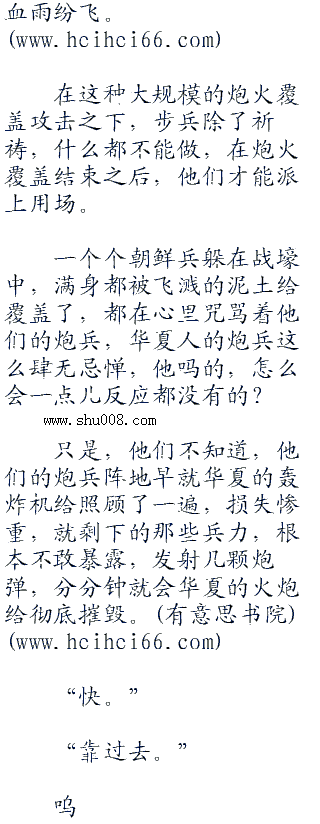 血雨纷飞。
(www.hcihci66.com)
在这种大规模的炮火覆
盖攻击之下，步兵除了祈
祷，什么都不能做，在炮火
覆盖结束之后，他们才能派
上用场。
一个个朝鲜兵躲在战壕
中，满身都被飞溅的泥土给
覆盖了，都在心里咒骂着他
们的炮兵，华夏人的炮兵这
么肆无忌惮，他吗的，怎么
会一点儿反应都没有的？
www.shu008.com
只是，他们不知道，他
们的炮兵阵地早就华夏的轰
炸机给照顾了一遍，损失惨
重，就剩下的那些兵力，根
本不敢暴露，发射几颗炮
弹，分分钟就会华夏的火炮
给彻底摧毁。(有意思书院)
(www.hcihci66.com)
“快。”
“靠过去。”
呜